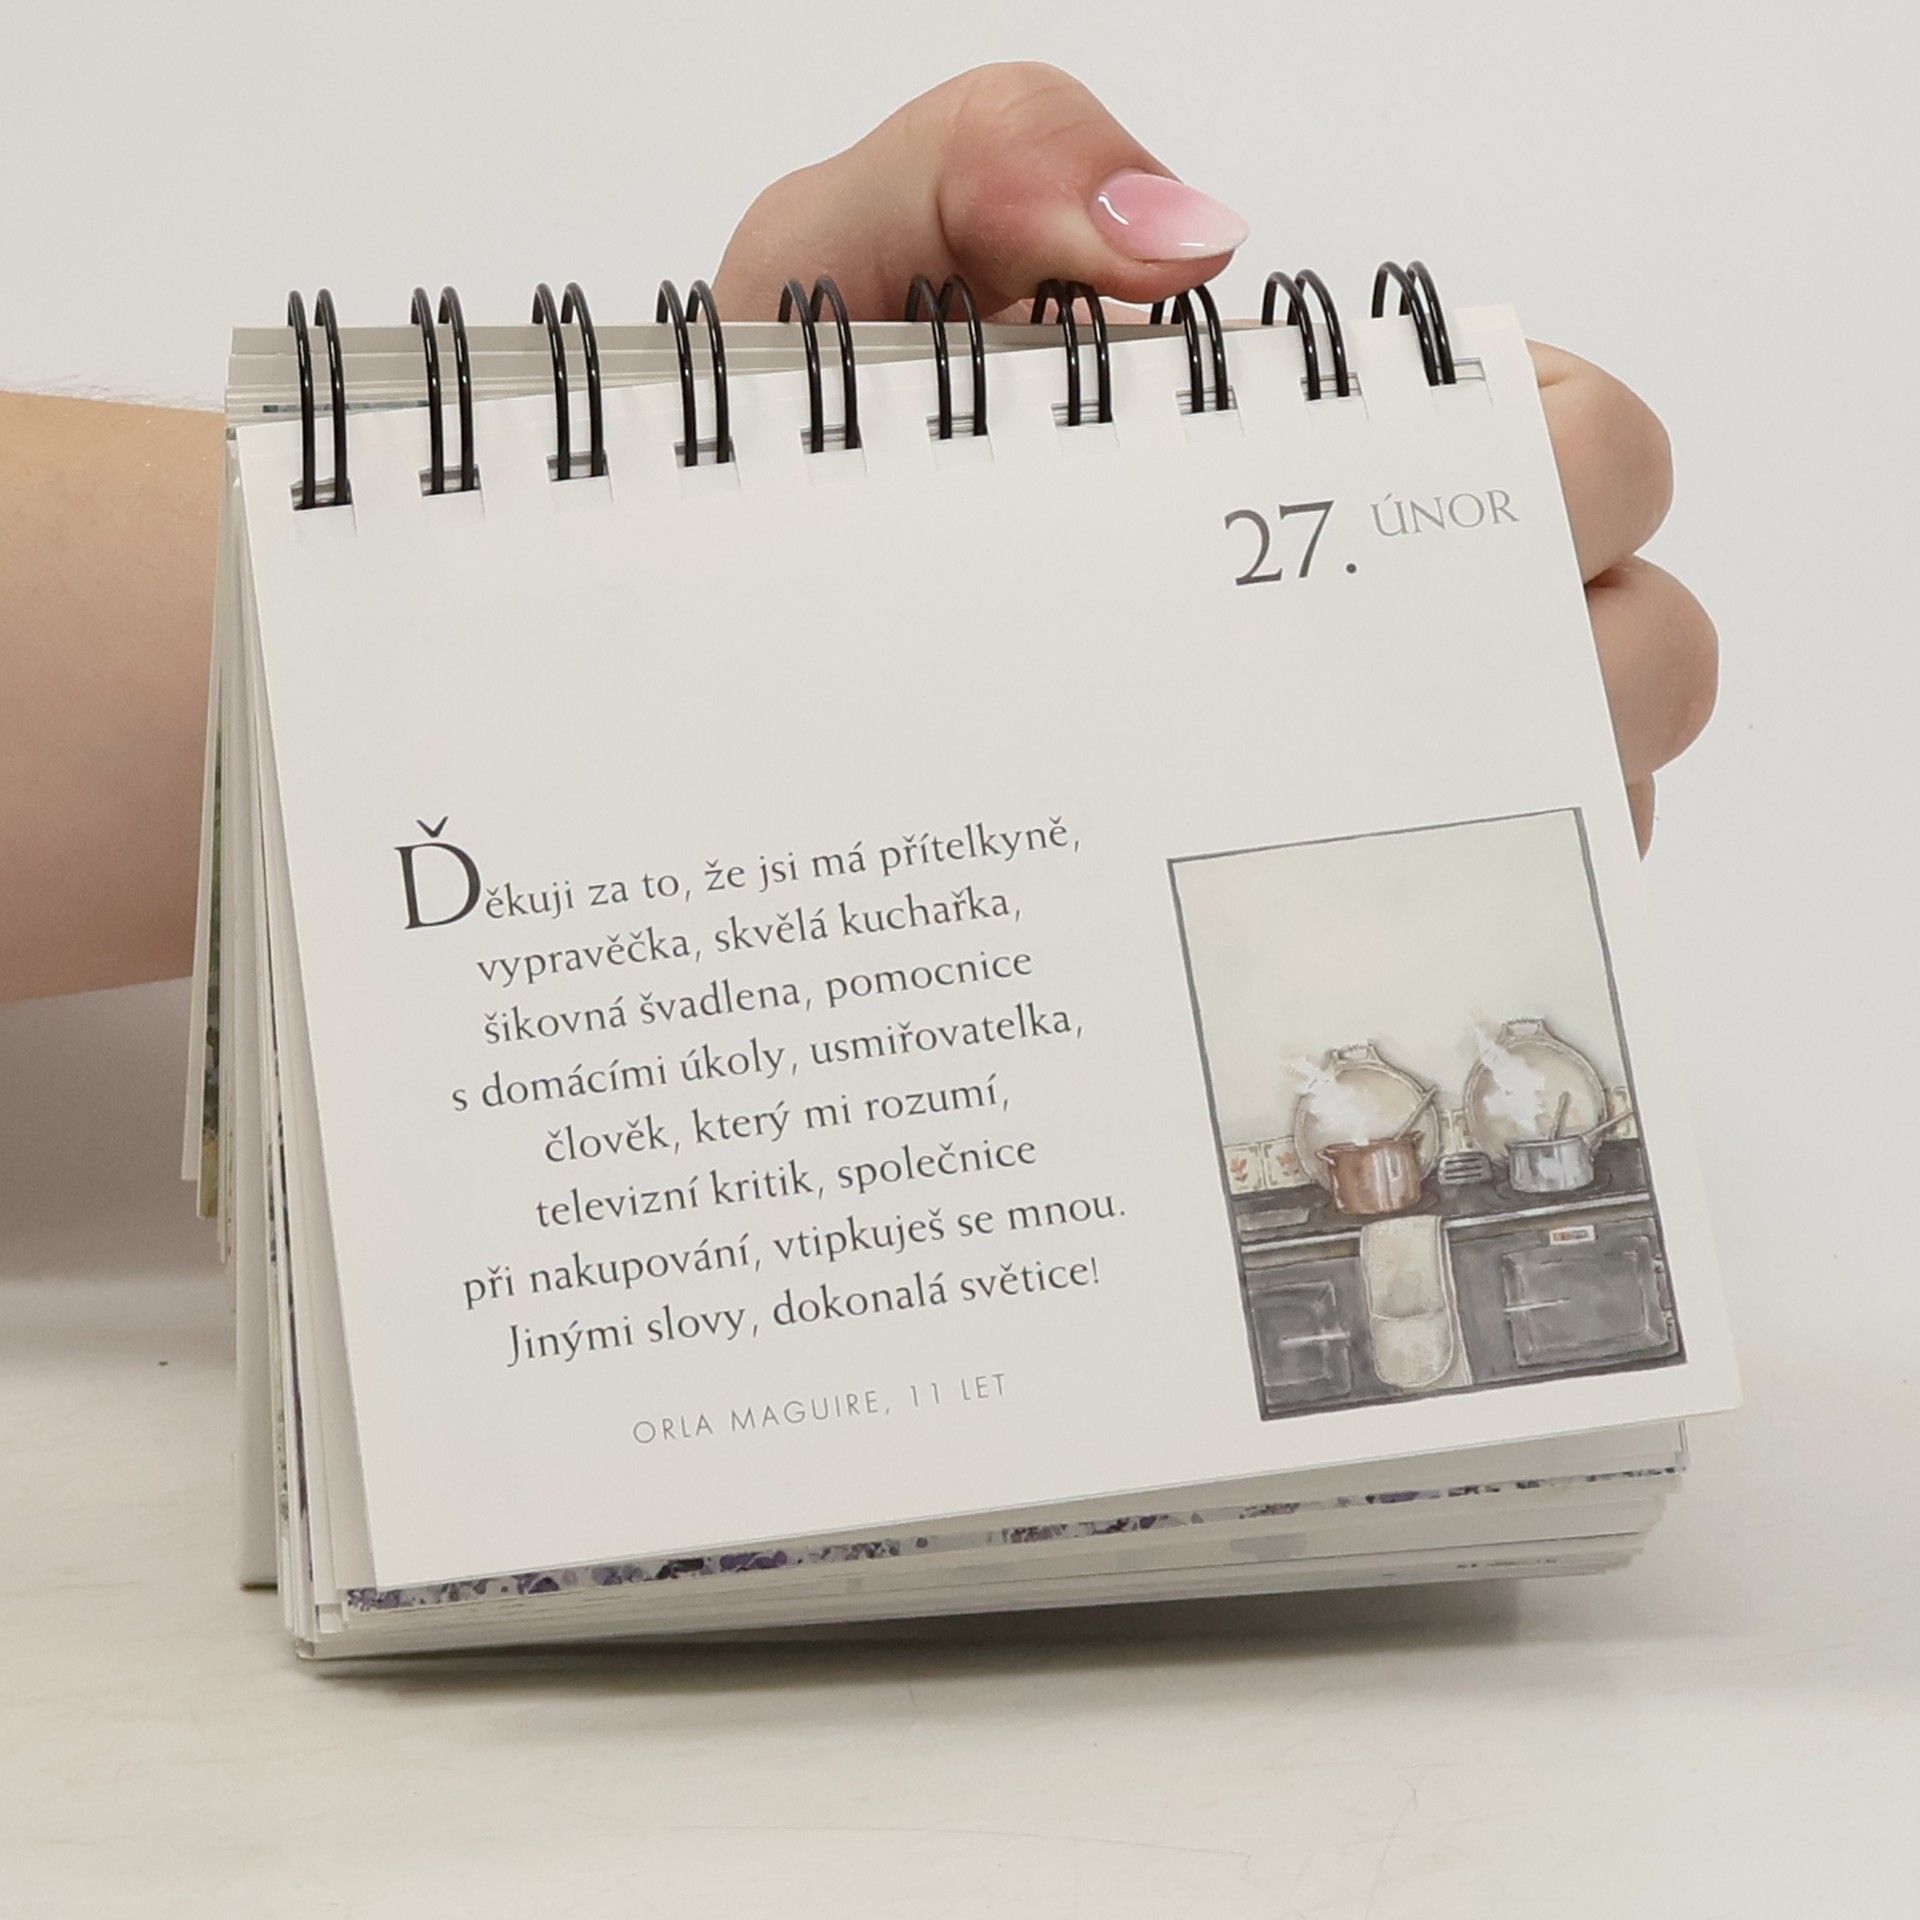 27. ÚNOR
Ďěkuji za to, že jsi má přítelkyně,
vypravěčka, skvělá kuchařka,
šikovná švadlena, pomocnice
s domácími úkoly, usmiřovatelka,
člověk, který mi rozumí,
televizní kritik, společnice
při nakupování, vtipkuješ se mnou.
Jinými slovy, dokonalá světice!
ORLA MAGUIRE, 11 LET